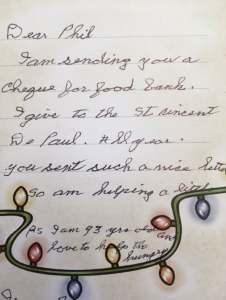 Dear Phil
I am sending you a
cheque for food bank.
I give to the St vincent
De Paul. all year.
you sent such a nice letter
So am helping a little
As I am 93 yrs old an
love to help the
hungry